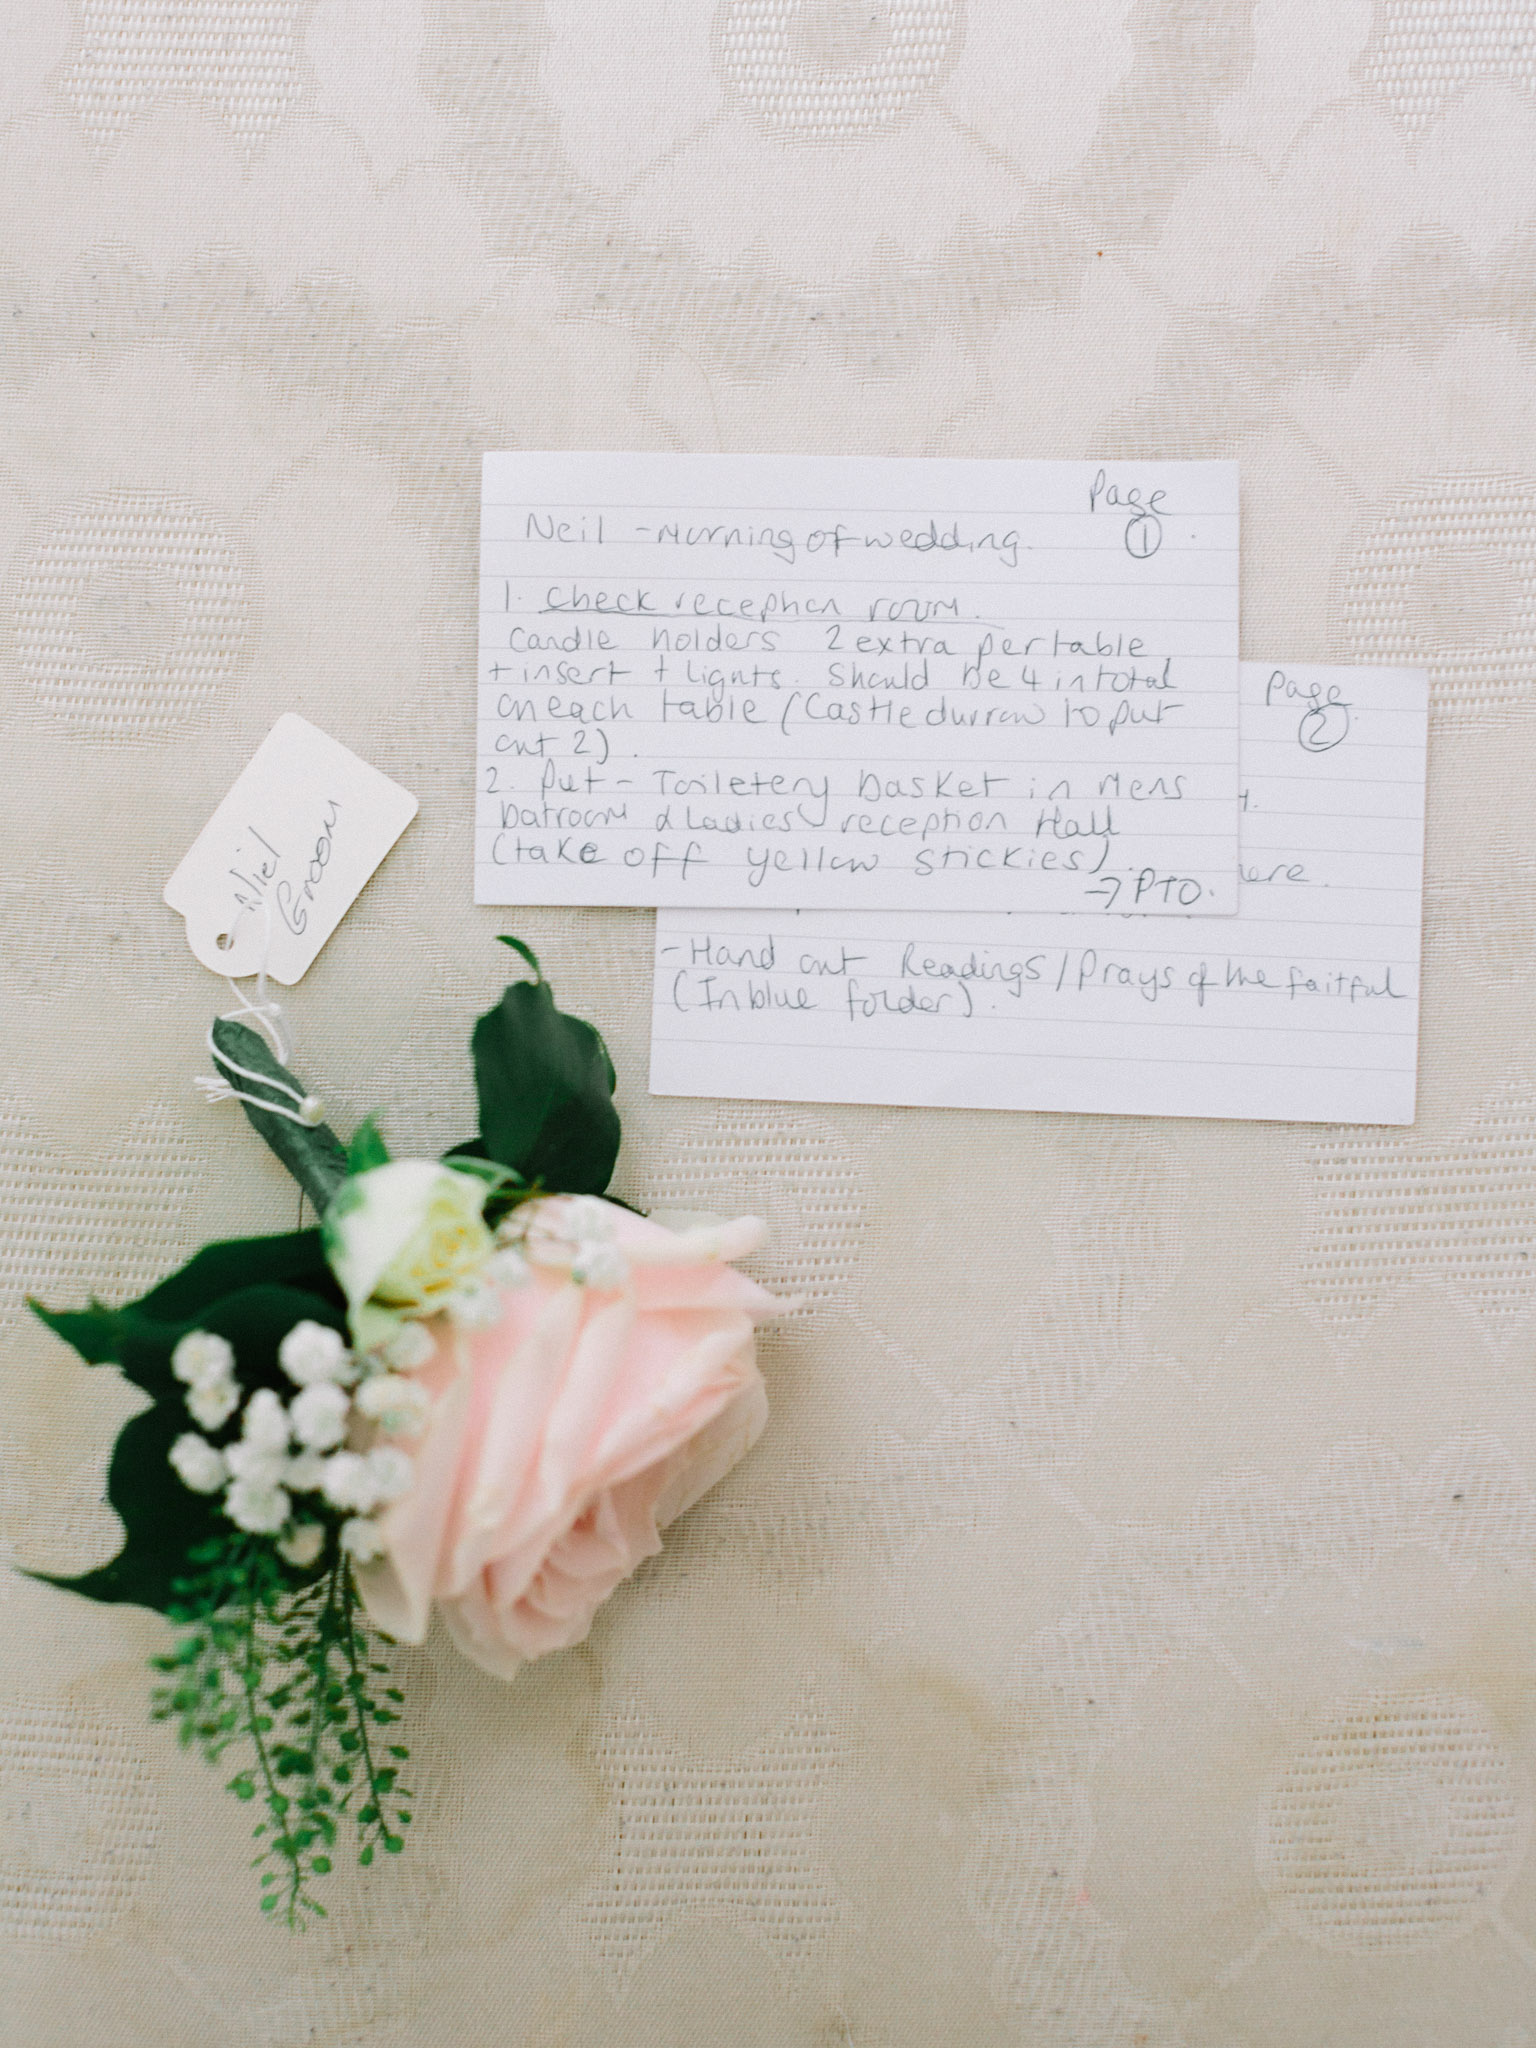 Page
1
Neil - Morning of wedding.
1. Check reception room.
Candle holders 2 extra per table
+ insert + lights. Should be 4 in total
on each table (Castledurrow to put
out 2).
2. Put - Toiletery basket in Mens
batroom & Ladies reception Hall
(take off yellow stickies).
→ PTO.
Page
2
ere.
- Hand out Readings / Prays of the faitful
(In blue folder).
Niel
Groom